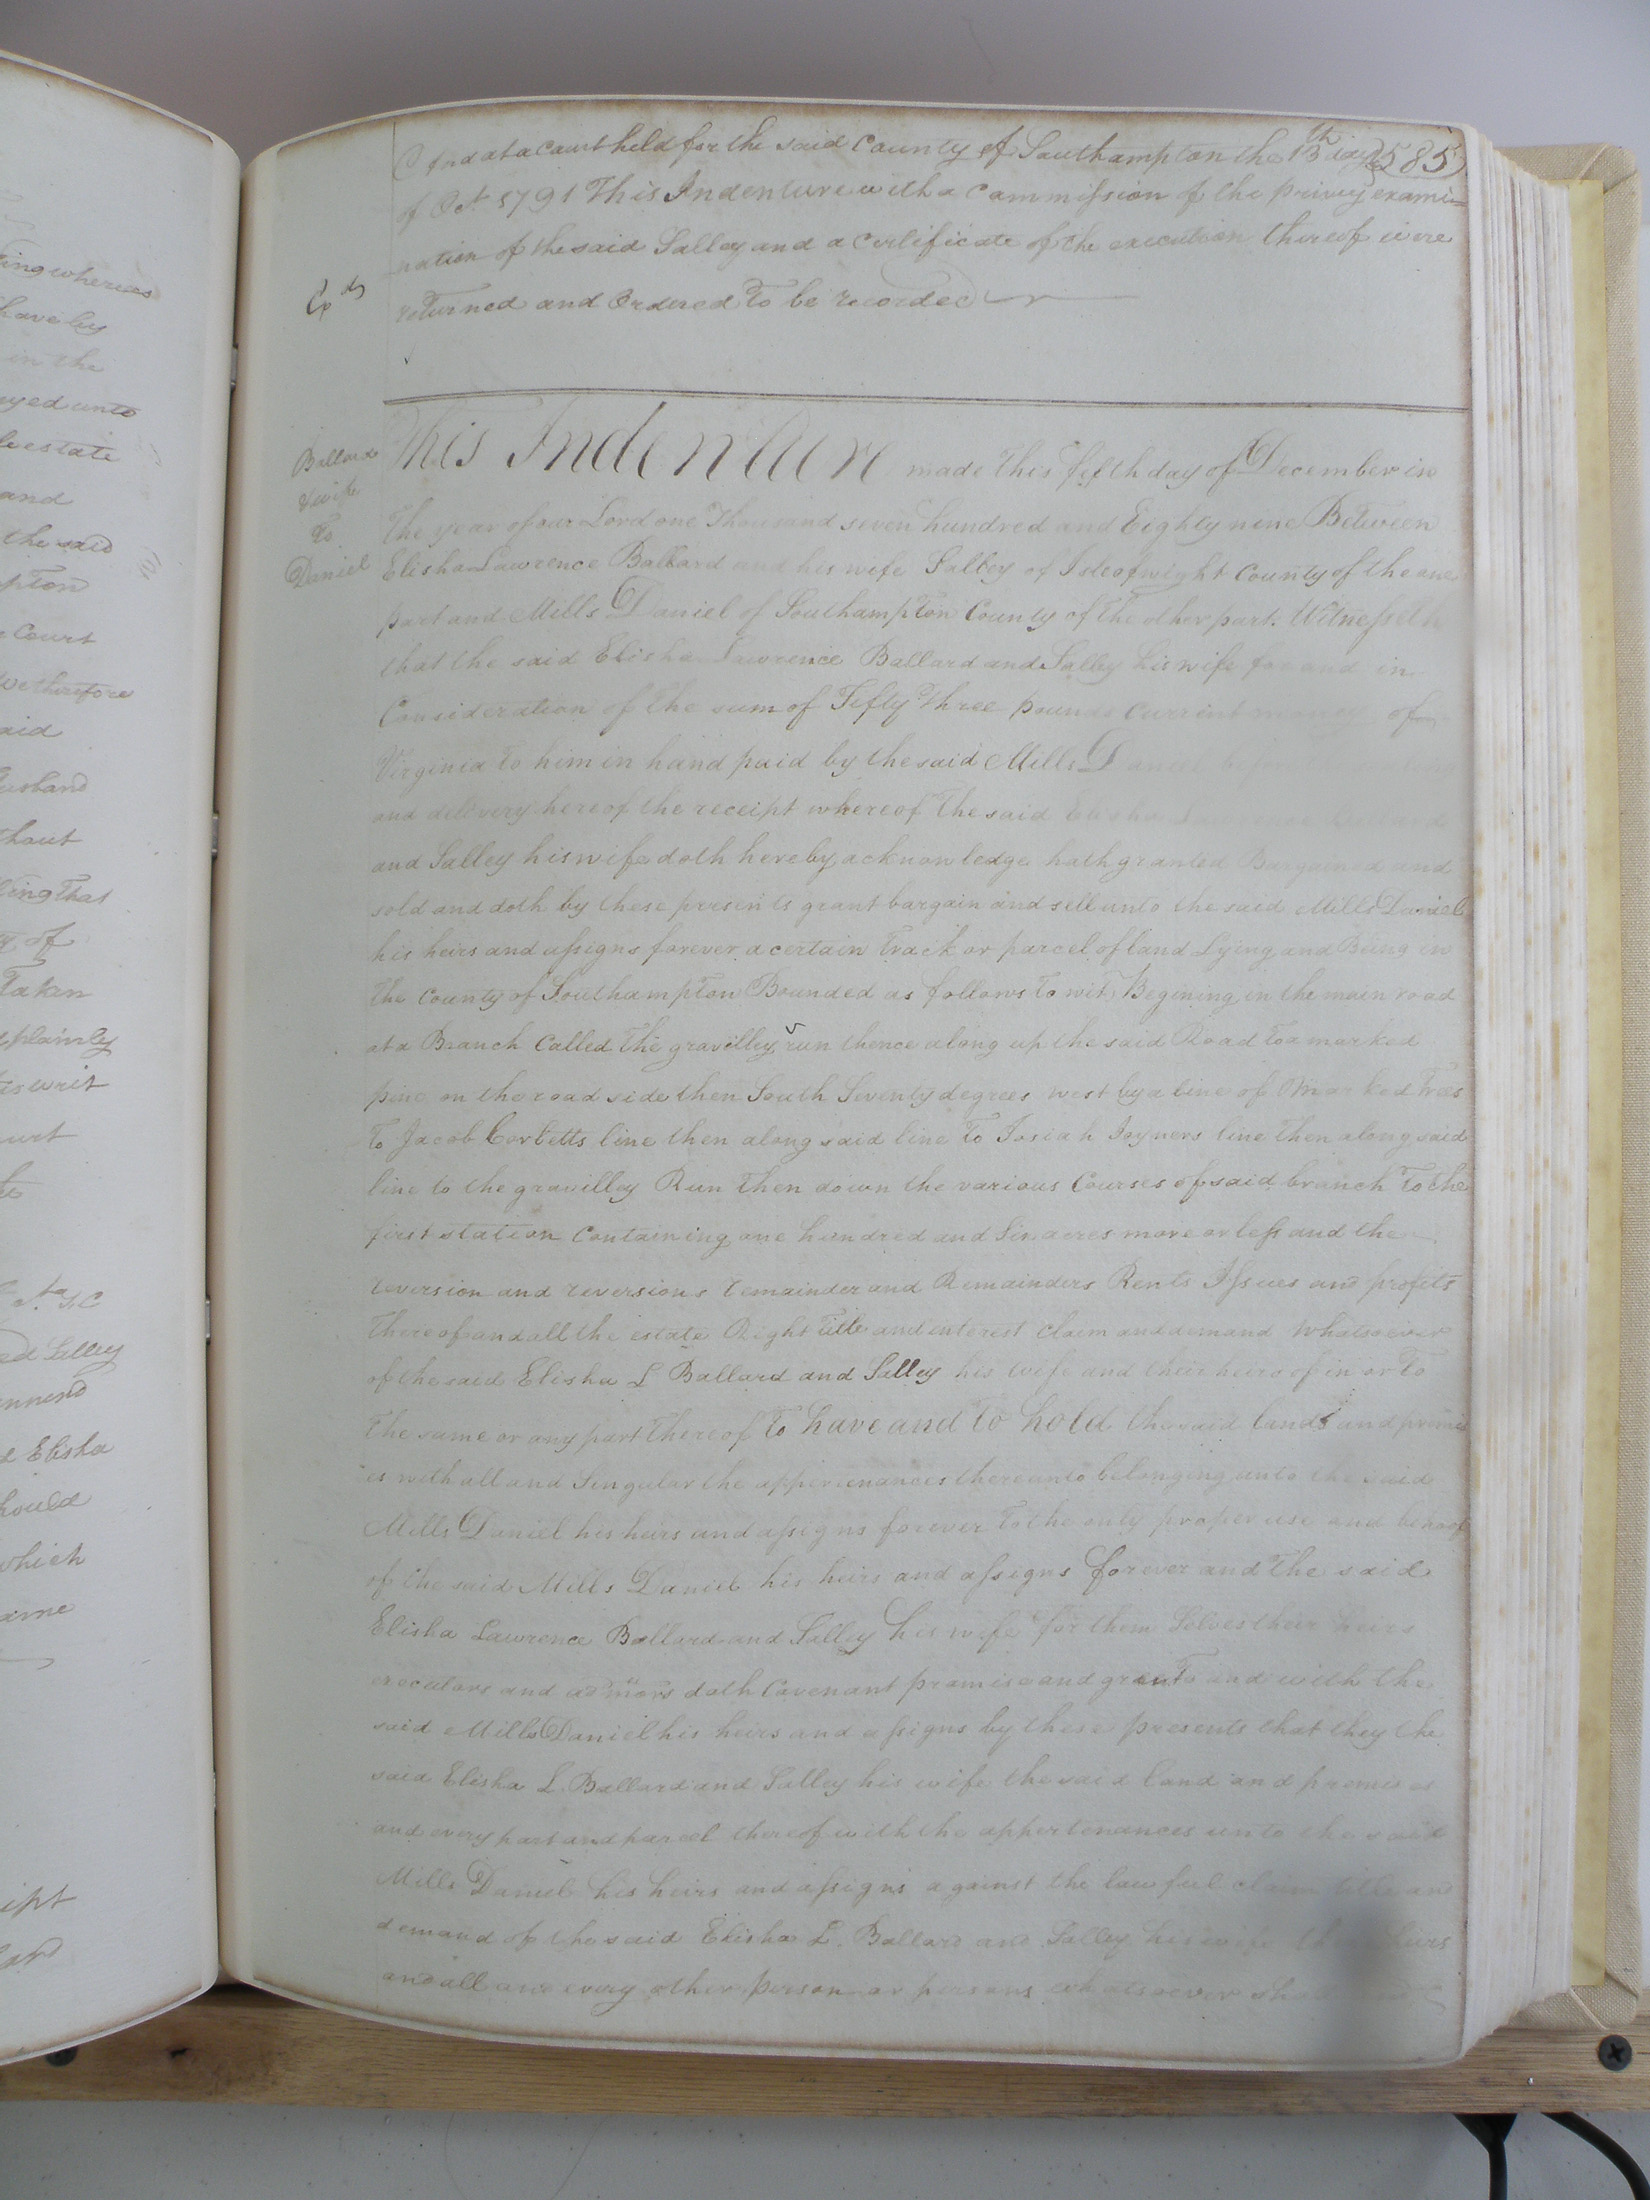 ing whereas
have by
in the
eyed unto
le estate
and
the said
pton
Court
We therefore
aid
usband
thout
ing that
of
Taken
plainly
is writ
urt
ed Salley
nnend
Elisha
hould
which
ame
ipt
And at a Court held for the said County of Southampton the 13th day (585)
of Oct 1791 This Indenture with a Commission of the privey exami=
nation of the said Salley and a Certificate of the execution thereof were
returned and Ordered To be recorded
Ballard
& wife
To
Daniel
This Indenture made this fifth day of December in
The year of our Lord one Thousand seven hundred and Eighty nine Between
Elisha Lawrence Ballard and his wife Salley of Isle of wight County of the one
part and Mills Daniel of Southampton County of the other part. Witnesseth
that the said Elisha Lawrence Ballard and Salley his wife for and in
Consideration of the sum of Fifty Three pounds Current money of
Virginia To him in hand paid by the said Mills Daniel
and delivery hereof the receipt whereof The said Elisha Lawrence Ballard
and Salley his wife doth hereby acknowledge hath granted Bargained and
sold and doth by these presents grant bargain and sell unto the said Mills Daniel
his heirs and assigns forever a certain Track or parcel of land Lying and Being in
the County of Southampton Bounded as follows To wit, Begining in the main road
at a Branch Called The gravilley run thence along up the said Road To a marked
pine on the road side then South Seventy degrees west by a line of Marked Trees
To Jacob Corbetts line then along said line To Josiah Joyners line Then along said
line to the gravilley Run Then down the various Courses of said branch To the
first station Containing one hundred and Six acres more or less and the
reversion and reversions remainder and Remainders Rents Issues and profits
thereof and all the estate Right Title and interest claim and demand Whatsoever
of the said Elisha L Ballard and Salley his wife and their heirs of in or To
The same or any part Thereof To have and To hold the said lands and premis
es with all and Singular the appertenances thereunto belonging unto the said
Mills Daniel his heirs and assigns forever To the only proper use and behoof
of the said Mills Daniel his heirs and assigns forever and The said
Elisha Lawrence Ballard and Salley his wife for them Selves their heirs
executors and admors doth Covenant promise and grant To and with the
said Mills Daniel his heirs and assigns by these presents that they the
said Elisha L. Ballard and Salley his wife the said land and premises
and every part and parcel thereof with the appertenances unto the said
Mills Daniel his heirs and assigns against the lawful claim title and
demand of the said Elisha L. Ballard and Salley his wife heirs
and all and every other person or persons whatsoever